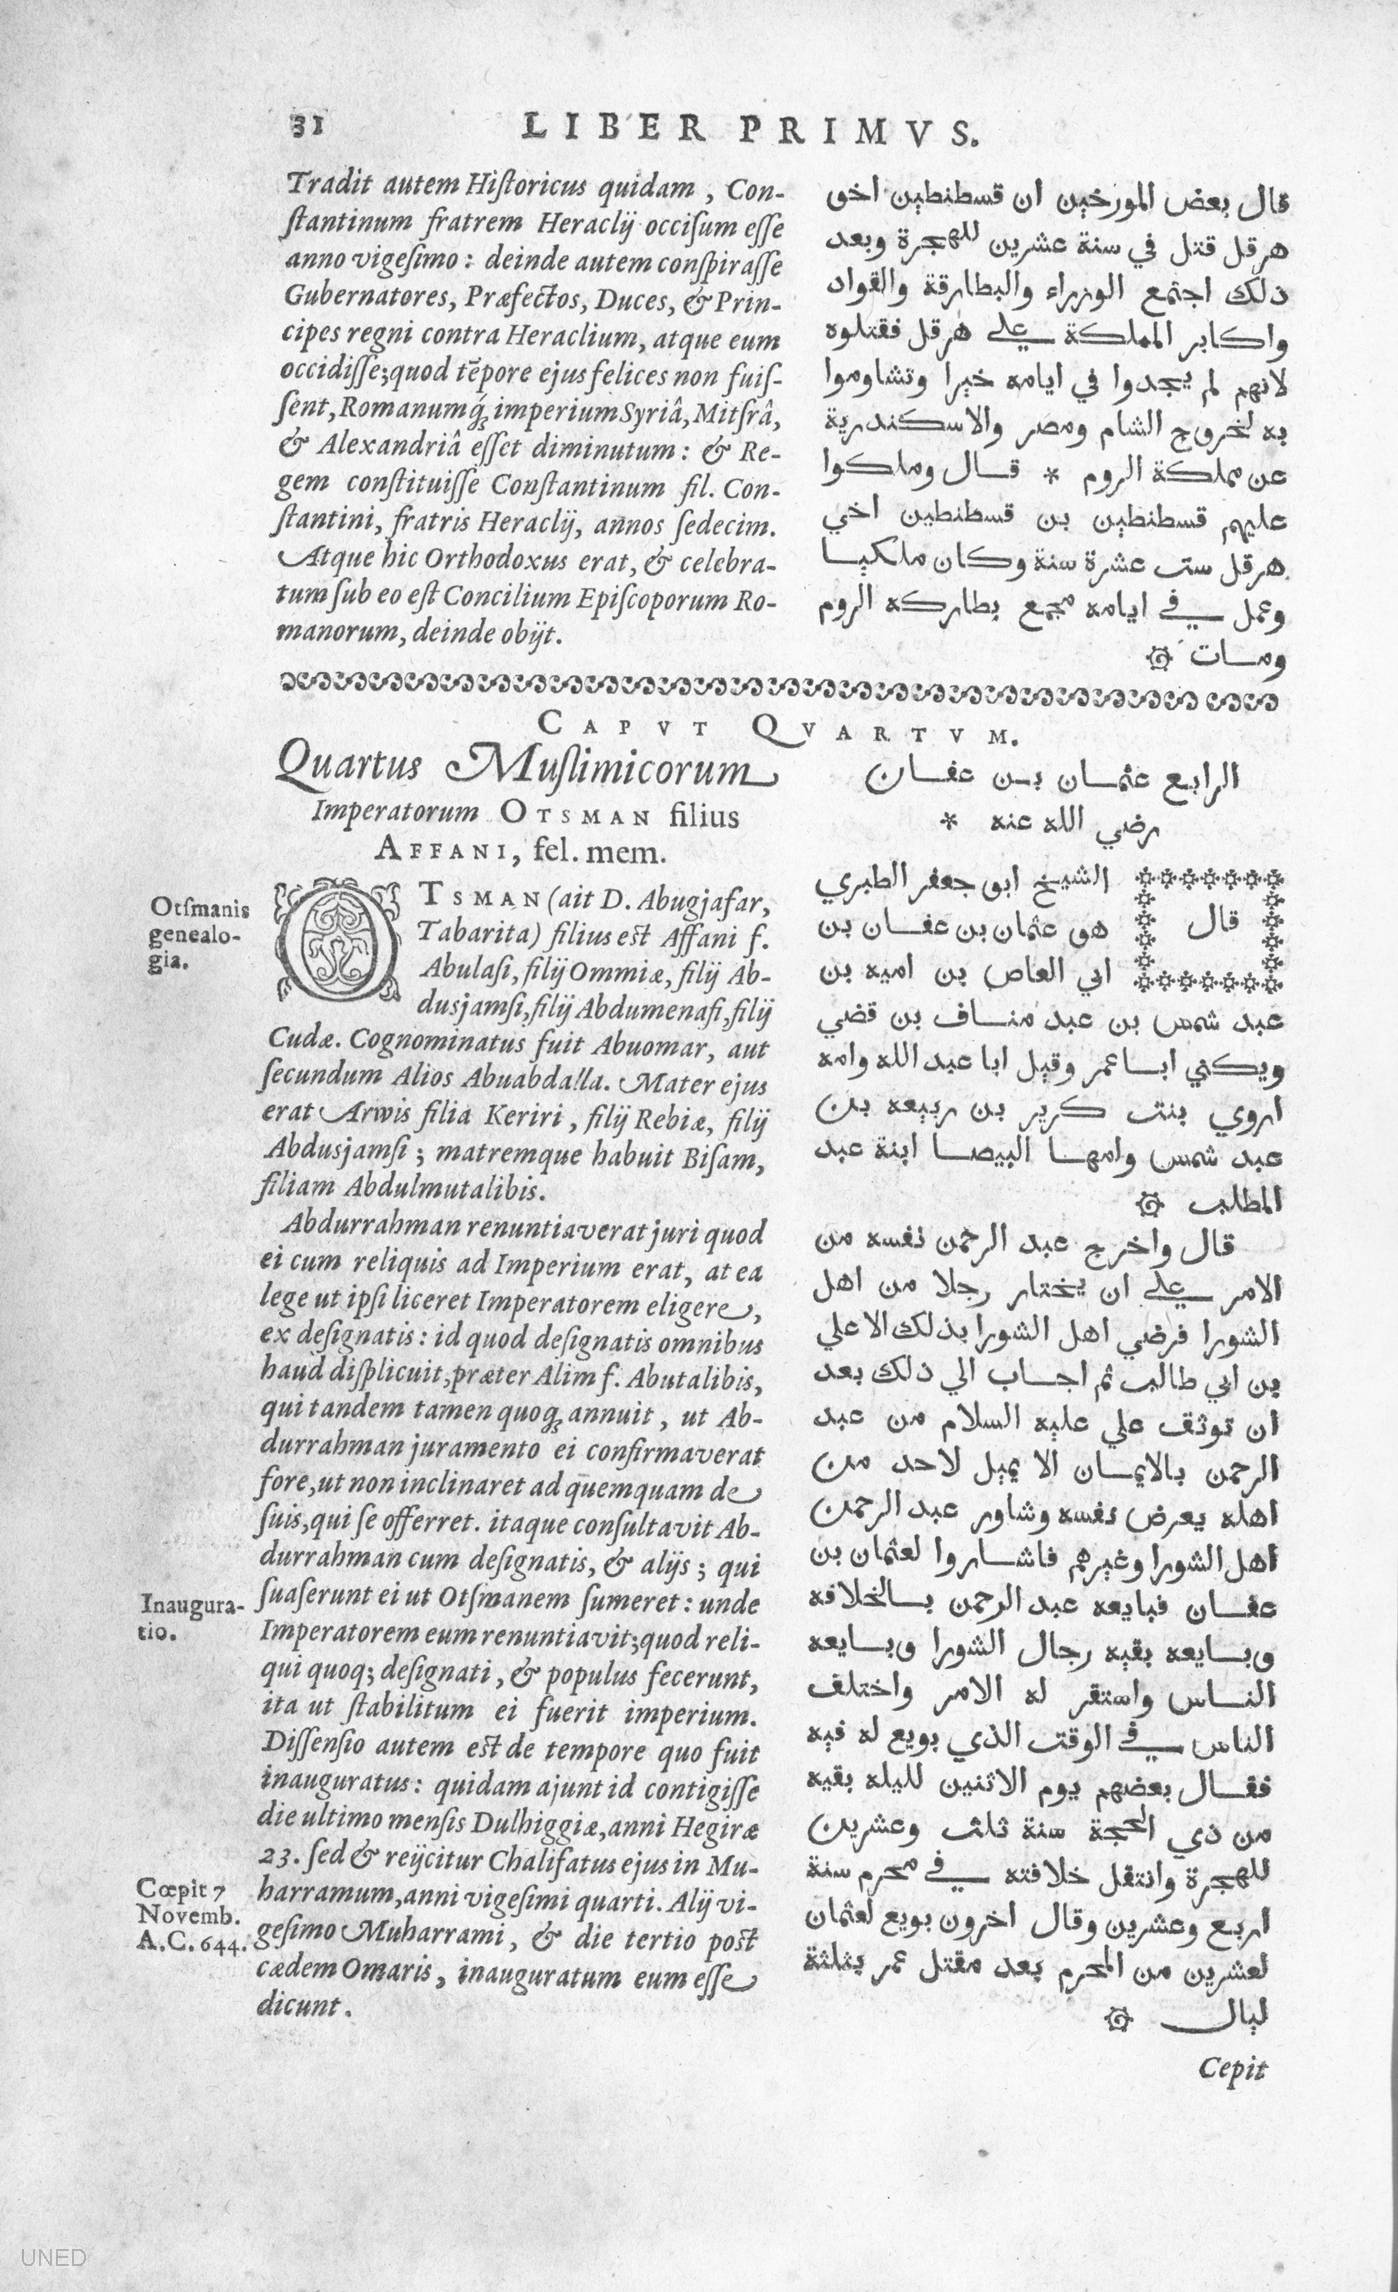 31 LIBER PRIMVS.
Tradit autem Hiſtoricus quidam , Con-
ſtantinum fratrem Heraclij occiſum eſſe
anno vigeſimo : deinde autem conſpiraſſe
Gubernatores, Præfectos, Duces, & Prin-
cipes regni contra Heraclium, atque eum
occidiſſe;quod tẽpore ejus felices non fuiſ-
ſent, Romanumq́ꝫ imperium Syriâ, Mitſrâ,
& Alexandriâ eſſet diminutum : & Re-
gem conſtituiſſe Conſtantinum fil. Con-
ſtantini, fratris Heraclij, annos ſedecim.
Atque hic Orthodoxus erat, & celebra-
tum ſub eo eſt Concilium Epiſcoporum Ro-
manorum, deinde obijt.
قال بعض المورخين ان قسطنطين اخو
هرقل قتل في سنة عشرين للهجرة وبعد
ذلك اجتمع الوزراء والبطارقة والقواد
واكابر المملكة علي هرقل فقتلوه
لانهم لم يجدوا في ايامه خيرا وتشاوموا
به لخروج الشام ومصر والاسكندرية
عن مملكة الروم * قال وملكوا
عليهم قسطنطين بن قسطنطين اخي
هرقل ست عشرة سنة وكان ملكيا
وعمل في ايامه مجمع بطاركه الروم
ومات
CAPVT QVARTVM.
Quartus Muſlimicorum
Imperatorum OTSMAN filius
AFFANI, fel. mem.
الرابع عثمان بن عفان
رضي الله عنه *
Otſmanis
genealo-
gia.
OTSMAN (ait D. Abugjafar,
Tabarita) filius eſt Affani f.
Abulaſi, filij Ommiæ, filij Ab-
dusjamſi, filij Abdumenafi, filij
Cudæ. Cognominatus fuit Abuomar, aut
ſecundum Alios Abuabdalla. Mater ejus
erat Arwis filia Keriri , filij Rebiæ, filij
Abdusjamſi ; matremque habuit Biſam,
filiam Abdulmutalibis.
Abdurrahman renuntiaverat juri quod
ei cum reliquis ad Imperium erat, at ea
lege ut ipſi liceret Imperatorem eligere,
ex deſignatis : id quod deſignatis omnibus
haud diſplicuit, præter Alim f. Abutalibis,
qui tandem tamen quoqꝫ annuit , ut Ab-
durrahman juramento ei confirmaverat
fore, ut non inclinaret ad quemquam de
ſuis, qui ſe offerret. itaque conſultavit Ab-
durrahman cum deſignatis, & alijs ; qui
Inaugura-
tio.
ſuaſerunt ei ut Otſmanem ſumeret : unde
Imperatorem eum renuntiavit;quod reli-
qui quoq; deſignati , & populus fecerunt,
ita ut ſtabilitum ei fuerit imperium.
Diſſenſio autem eſt de tempore quo fuit
inauguratus : quidam ajunt id contigiſſe
die ultimo menſis Dulhiggiæ, anni Hegiræ
23. ſed & reijcitur Chalifatus ejus in Mu-
Cœpit 7
Novemb.
A.C. 644.
harramum, anni vigeſimi quarti. Alij vi-
geſimo Muharrami, & die tertio poſt
cædem Omaris, inauguratum eum eſſe
dicunt.
قال الشيخ ابو جعفر الطبري
هو عثمان بن عفان بن
ابي العاص بن اميه بن
عبد شمس بن عبد مناف بن قضي
ويكني ابا عمر وقيل ابا عبد الله وامه
اروي بنت كرير بن ربيعه بن
عبد شمس وامها البيصا ابنة عبد
المطلب
قال واخرج عبد الرحمن نفسه من
الامر علي ان يختار رجلا من اهل
الشورا فرضي اهل الشورا بذلك الا علي
بن ابي طالب ثم اجاب الي ذلك بعد
ان توثق علي عليه السلام من عبد
الرحمن بالايمان الا يميل لاحد من
اهله يعرض نفسه وشاور عبد الرحمن
اهل الشورا وغيرهم فاشاروا لعثمان بن
عفان فبايعه عبد الرحمن بالخلافه
وبايعه بقيه رجال الشورا وبايعه
الناس واستقر له الامر واختلف
الناس في الوقت الذي بويع له فيه
فقال بعضهم يوم الاثنين لليله بقيه
من ذي الحجة سنة ثلث وعشرين
للهجرة وانتقل خلافته في محرم سنة
اربع وعشرين وقال اخرون بويع لعثمان
لعشرين من المحرم بعد مقتل عمر بثلثة
ليال
Cepit
UNED